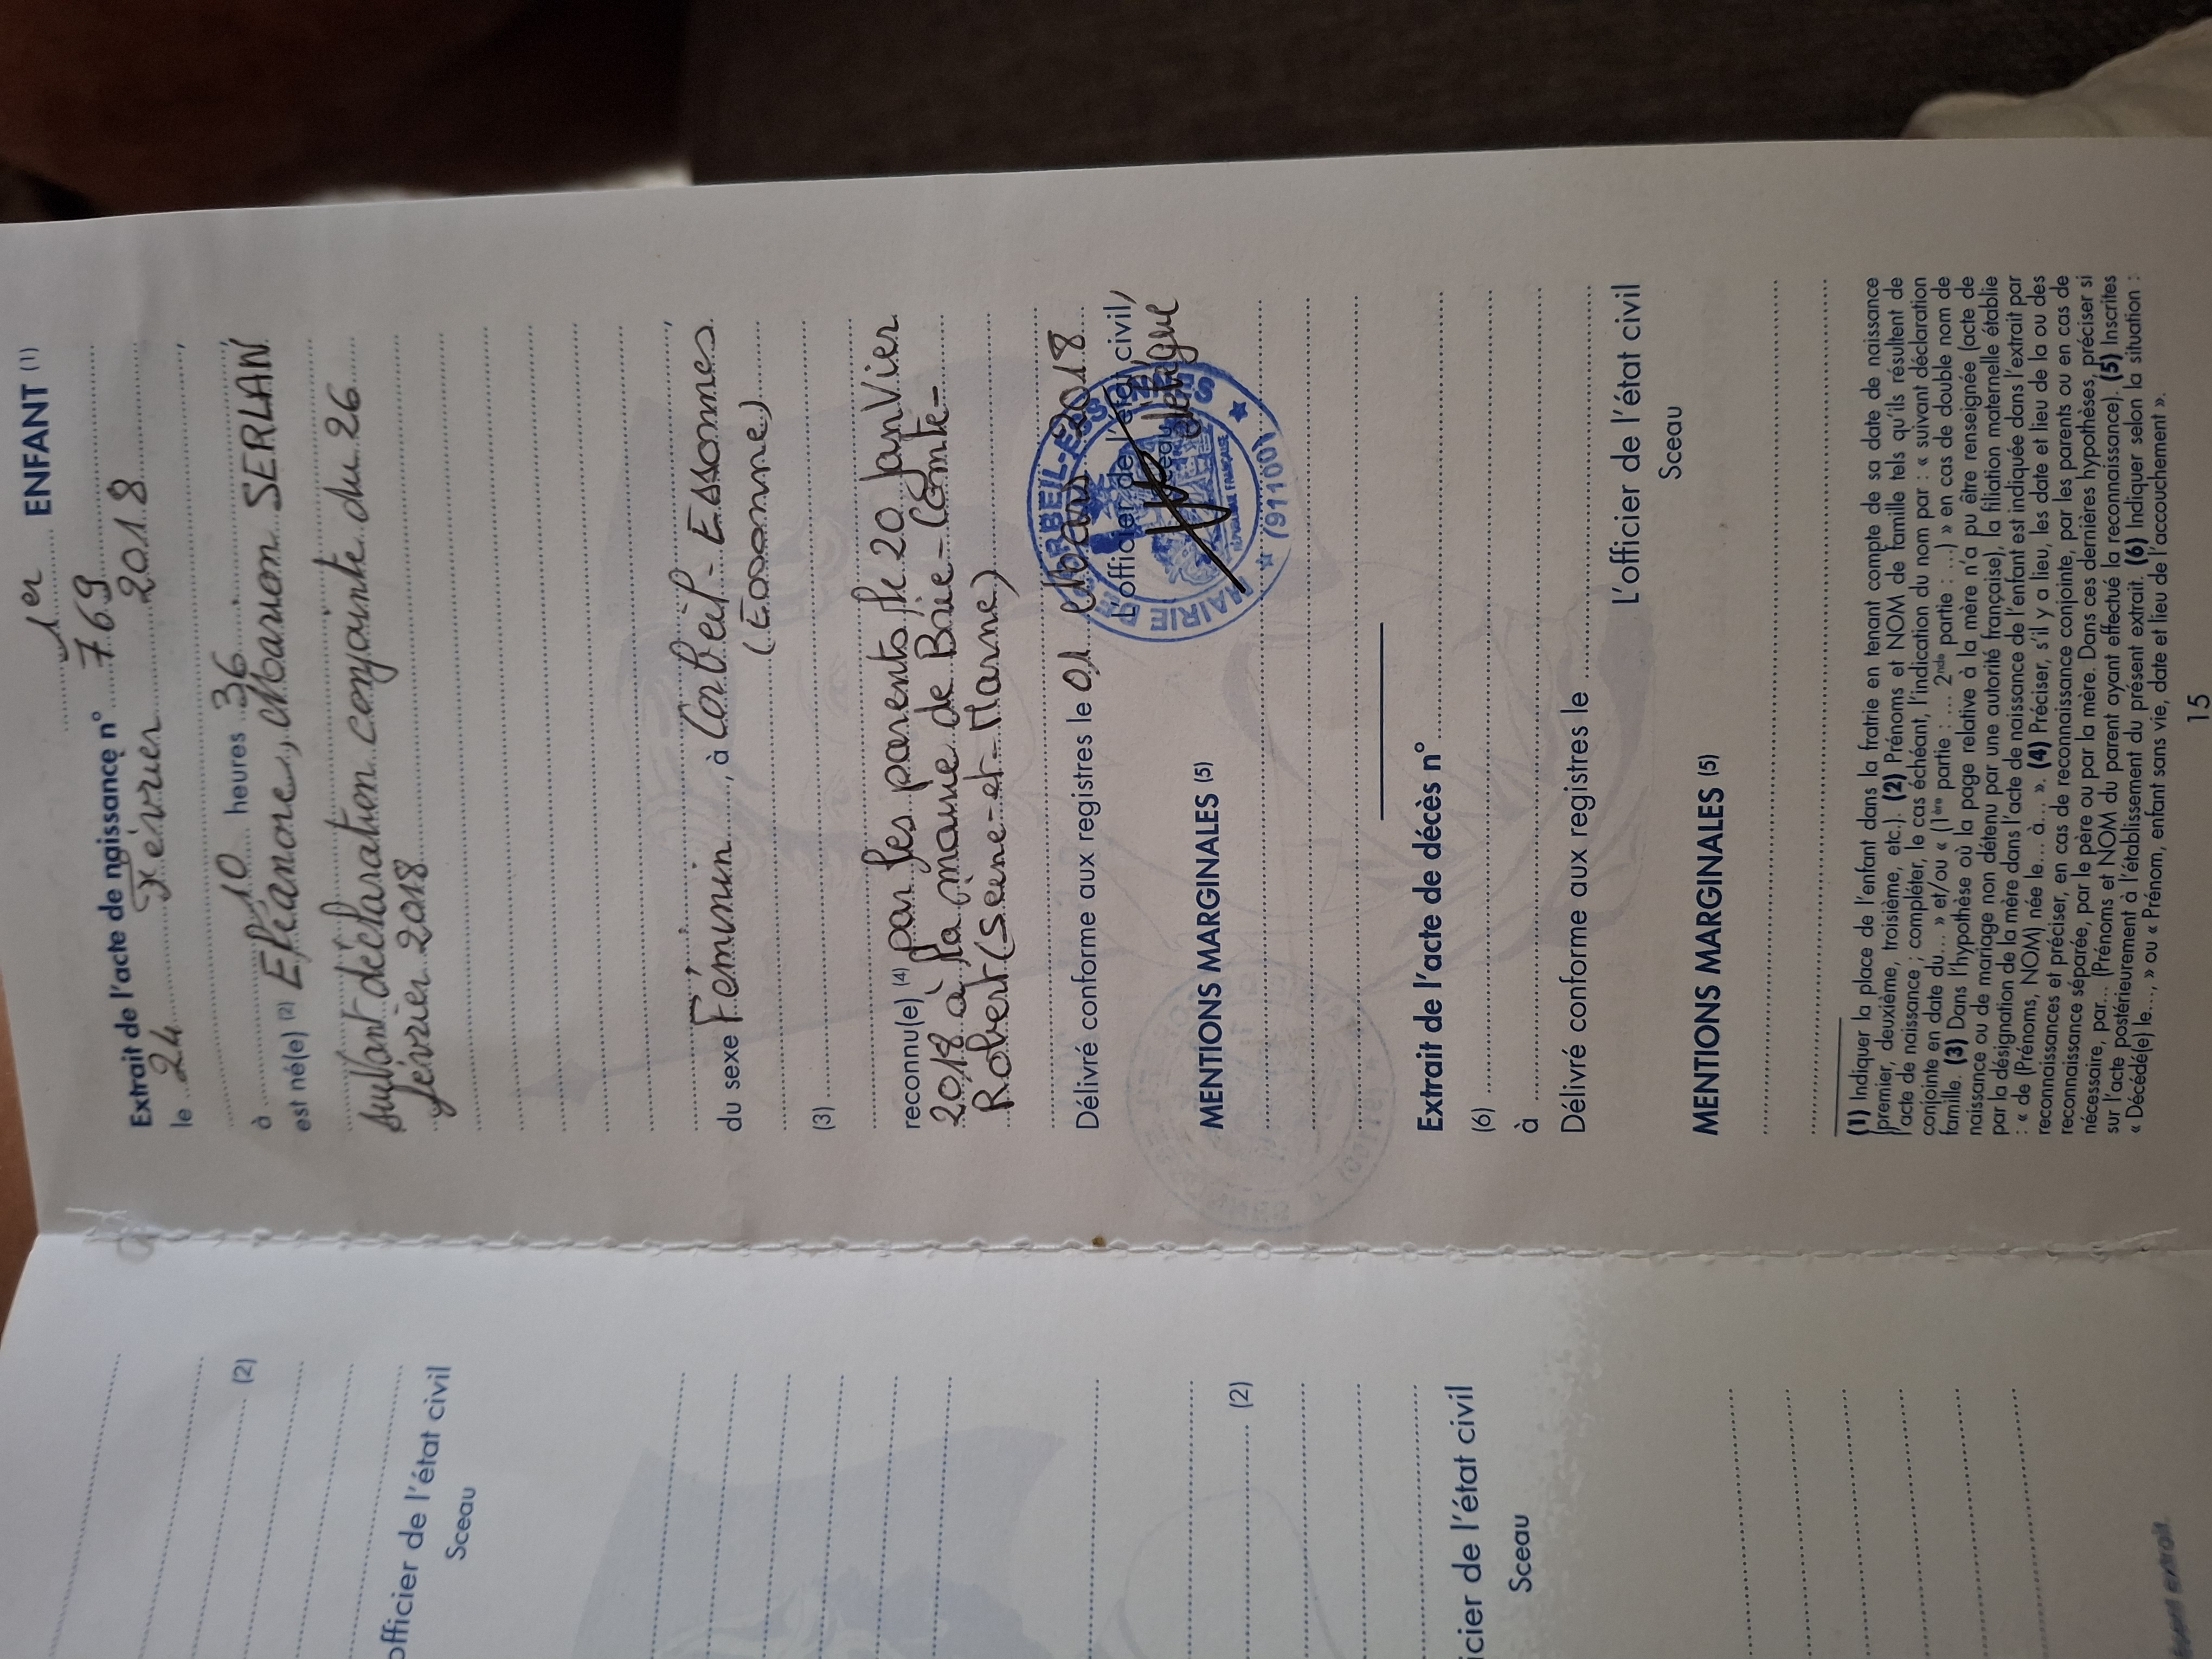 1er ENFANT (1)
Extrait de l'acte de naissance n° 769
le 24 Février 2018
à 10 heures 36
est né(e) (2) Eléanore, Marion SERLAN
suivant déclaration conjointe du 26
février 2018
du sexe Féminin, à Corbeil-Essonnes
(Essonne)
(3)
reconnu(e) (4) par les parents le 20 Janvier
2018 à la mairie de Brie-Comte-
Robert (Seine-et-Marne)
Délivré conforme aux registres le 01 Mars 2018
L'officier de l'état civil,
Sceau
délégué
MAIRIE DE CORBEIL-ESSONNES
(91100)
RÉPUBLIQUE FRANÇAISE
MENTIONS MARGINALES (5)
Extrait de l'acte de décès n°
(6)
à
Délivré conforme aux registres le
L'officier de l'état civil
Sceau
MENTIONS MARGINALES (5)
(1) Indiquer la place de l'enfant dans la fratrie en tenant compte de sa date de naissance
(premier, deuxième, troisième, etc.). (2) Prénoms et NOM de famille tels qu'ils résultent de
l'acte de naissance ; compléter, le cas échéant, l'indication du nom par : « suivant déclaration
conjointe en date du... » et/ou « (1ère partie : ... 2nde partie : ...) » en cas de double nom de
famille. (3) Dans l'hypothèse où la page relative à la mère n'a pu être renseignée (acte de
naissance ou de mariage non détenu par une autorité française), la filiation maternelle établie
par la désignation de la mère dans l'acte de naissance de l'enfant est indiquée dans l'extrait par
: « de (Prénoms, NOM) née le... à... ». (4) Préciser, s'il y a lieu, les date et lieu de la ou des
reconnaissances et préciser, en cas de reconnaissance conjointe, par les parents ou en cas de
reconnaissance séparée, par le père ou par la mère. Dans ces dernières hypothèses, préciser si
nécessaire, par... (Prénoms et NOM du parent ayant effectué la reconnaissance). (5) Inscrites
sur l'acte postérieurement à l'établissement du présent extrait. (6) Indiquer selon la situation :
« Décédé(e) le..., » ou « Prénom, enfant sans vie, date et lieu de l'accouchement ».
15
(2)
officier de l'état civil
Sceau
(2)
icier de l'état civil
Sceau
extrait.